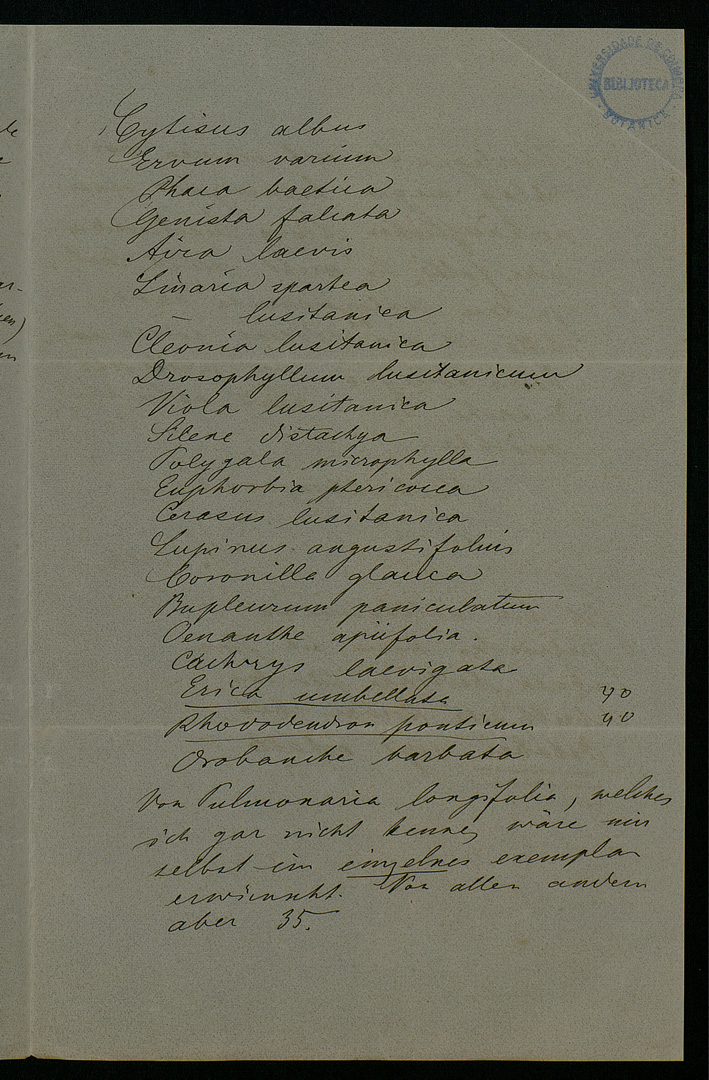 UNIVERSIDADE DE COIMBRA
BIBLIOTECA
BOTANICA
Cytisus albus
Ervum varium
Phaca baetica
Genista falcata
Aira laevis
Linaria spartea
— lusitanica
Cleonia lusitanica
Drosophyllum lusitanicum
Viola lusitanica
Silene distachya
Polygala microphylla
Euphorbia pterococca
Cerasus lusitanica
Lupinus angustifolius
Coronilla glauca
Bupleurum paniculatum
Oenanthe apiifolia.
Cachrys laevigata
Erica umbellata 40
Rhododendron ponticum 40
Orobanche barbata
Von Pulmonaria longifolia, welches
ich gar nicht kenne, wäre mir
selbst ein einzelnes exemplar
erwünscht. Von allen andern
aber 35.